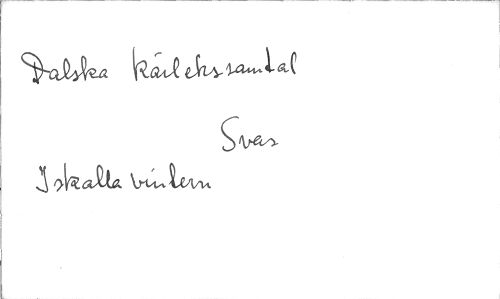 Dalska kärlekssamtal
Svas
Iskalla vintern